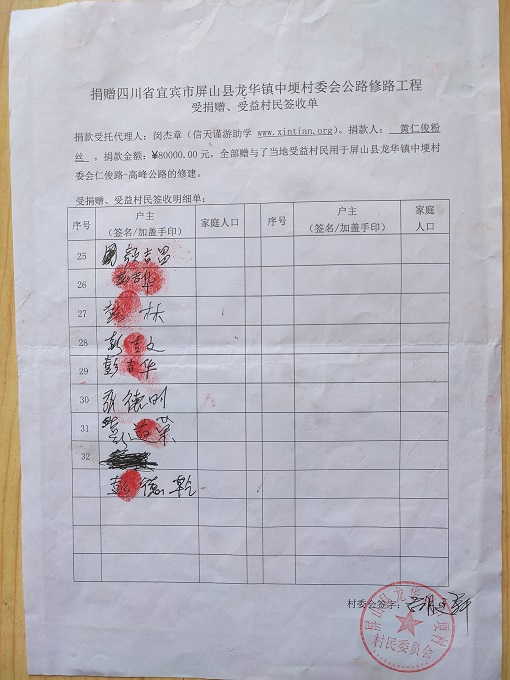 捐赠四川省宜宾市屏山县龙华镇中埂村委会公路修路工程
受捐赠、受益村民签收单
捐款受托代理人：闵杰章（信天谨游助学 www.xintian.org）。捐款人： 黄仁俊粉
丝 ，捐款金额：¥80000.00元，全部赠与了当地受益村民用于屏山县龙华镇中埂村
委会仁俊路-高峰公路的修建。
受捐赠、受益村民签收明细单：
序号 户主（签名/加盖手印） 家庭人口 序号 户主（签名/加盖手印） 家庭人口
25 吉昌
26 吉华
27 彭 林
28 彭 文
29 彭吉华
30 张德明
31 荣
32
彭德乾
村委会签字：
屏山县龙华 埂村
村民委员会